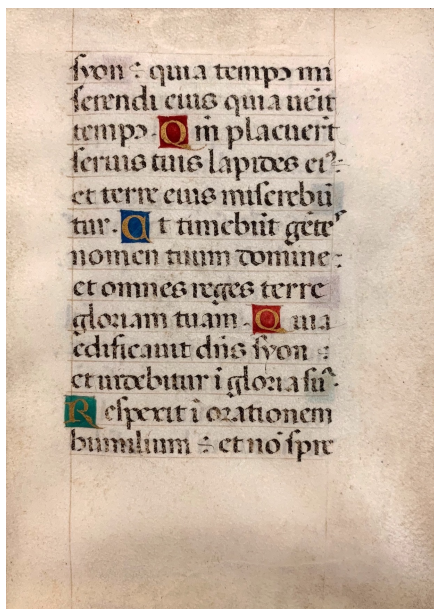 syon : quia temp⁹ mi
serendi eius quia uēit
temp⁹. Qm̄ placuer̄t
seruis tuis lapides ei⁹:
et terre eius miserebū
tur. Et timebūt gēte
nomen tuum domine:
et omnes reges terre
gloriam tuam. Quia
edificauit dn̄s syon :
et uidebitur ī gloria su⁹.
Respexit ī orationem
humilium : et nō spre